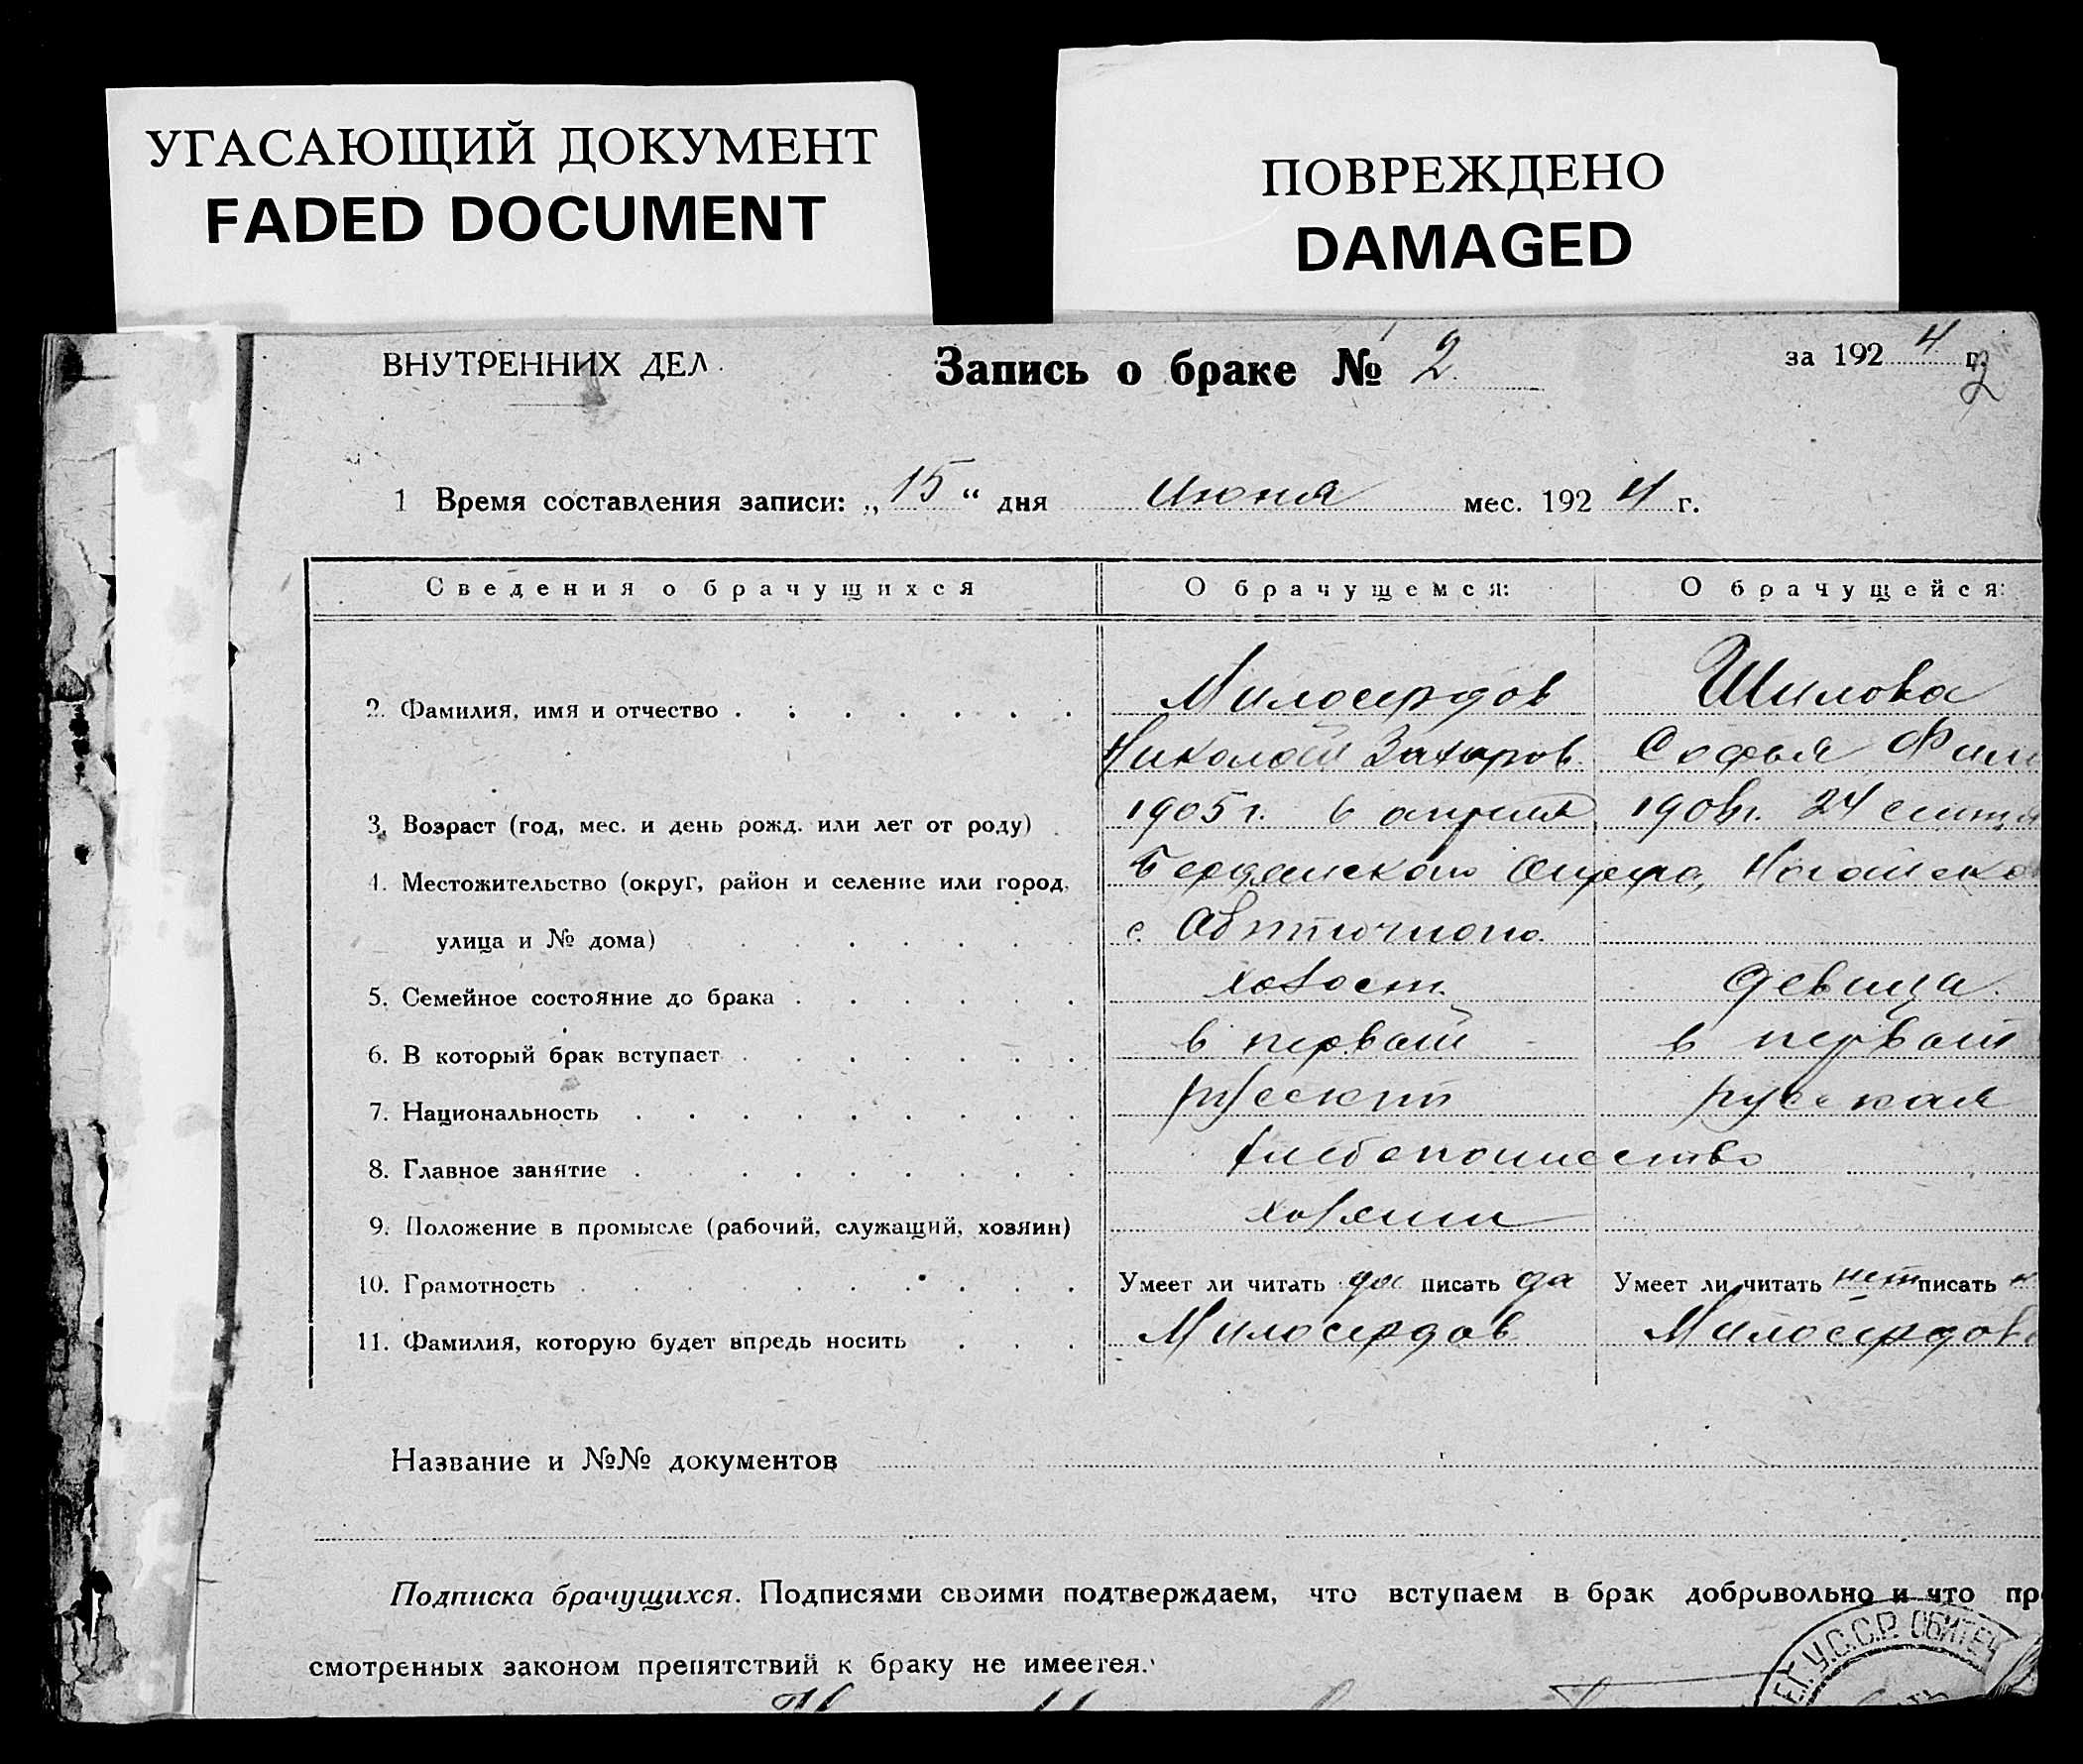 УГАСАЮЩИЙ ДОКУМЕНТ
FADED DOCUMENT
ПОВРЕЖДЕНО
DAMAGED
ВНУТРЕННИХ ДЕЛ
Запись о браке № 2
за 1924 г.
2
1 Время составления записи: „15“ дня июня мес. 1924 г.
Сведения о брачущихся О брачущемся: О брачущейся:
Милосердов Шилова
2. Фамилия, имя и отчество
Николай Захаров. Софья Фили
3. Возраст (год, мес. и день рожд. или лет от роду) 1905 г. 6 апреля 1906 г. 24 сентя
4. Местожительство (округ, район и селение или город, Бердянского Округа, Ногайско
улица и № дома) с.
5. Семейное состояние до брака холост. девица.
6. В который брак вступает в первый в первый
7. Национальность русский русская
8. Главное занятие хлебопашество
9. Положение в промысле (рабочий, служащий, хозяин) хозяин
10. Грамотность Умеет ли читать да писать да Умеет ли читать нет писать н
11. Фамилия, которую будет впредь носить Милосердов Милосердов
Название и №№ документов
Подписка брачущихся. Подписями своими подтверждаем, что вступаем в брак добровольно и что пр
смотренных законом препятствий к браку не имеется.
У.С.С.Р. ОБИТОЧ